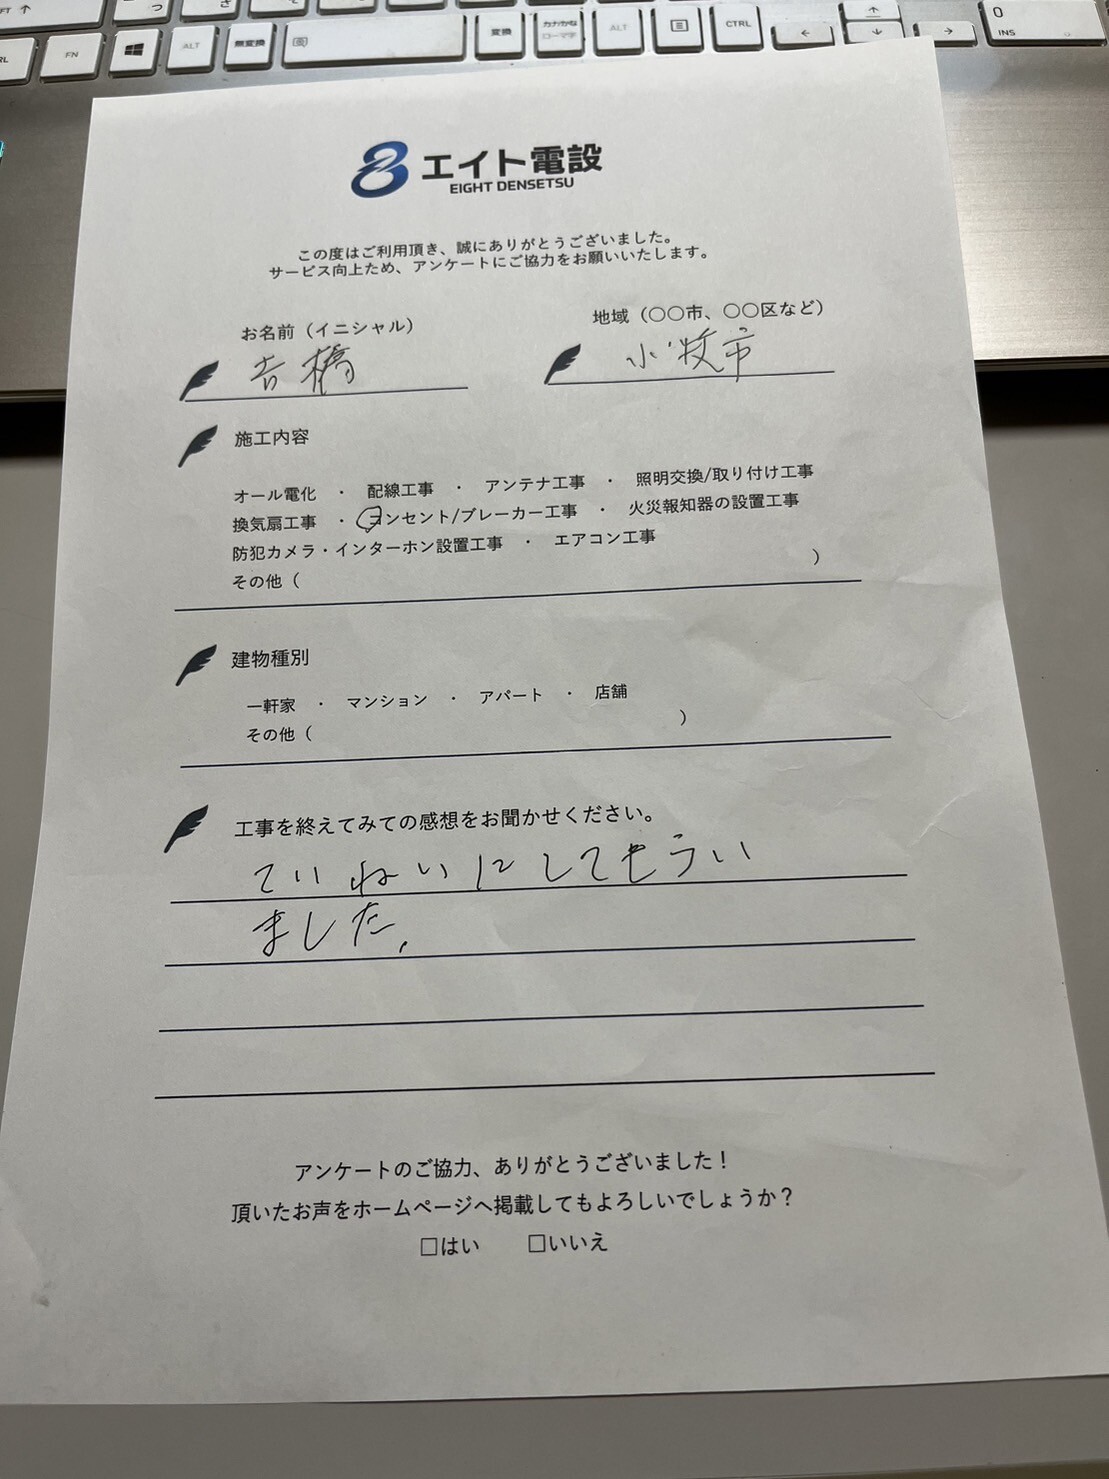 FN
ALT
無変換
変換
カナ/かな
ローマ字
ALT
CTRL
0
INS
エイト電設
EIGHT DENSETSU
この度はご利用頂き、誠にありがとうございました。
サービス向上ため、アンケートにご協力をお願いいたします。
お名前（イニシャル） 地域（〇〇市、〇〇区など）
吉橋 小牧市
施工内容
オール電化 ・ 配線工事 ・ アンテナ工事 ・ 照明交換/取り付け工事
換気扇工事 ・ コンセント/ブレーカー工事 ・ 火災報知器の設置工事
防犯カメラ・インターホン設置工事 ・ エアコン工事
その他（ ）
建物種別
一軒家 ・ マンション ・ アパート ・ 店舗
その他（ ）
工事を終えてみての感想をお聞かせください。
ていねいにしてもらい
ました.
アンケートのご協力、ありがとうございました！
頂いたお声をホームページへ掲載してもよろしいでしょうか？
□はい □いいえ